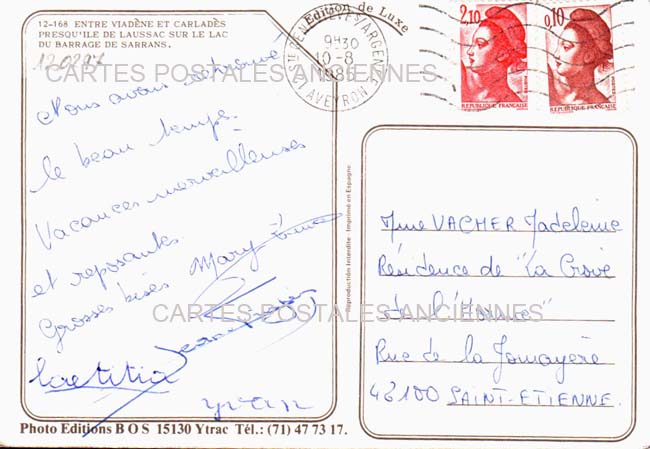 12-168 ENTRE VIADÈNE ET CARLADÈS
PRESQU'ILE DE LAUSSAC SUR LE LAC
DU BARRAGE DE SARRANS.
Edition de Luxe
9H30
10-8
AVEYRON
2,10
REPUBLIQUE FRANÇAISE
0,10
REPUBLIQUE FRANÇAISE
CARTES POSTALES ANCIENNES
Nous avons retrouvé
le beau temps.
Vacances merveilleuses
et reposantes.
Grosses bises Mary
laetitia
yvan
Reproduction Interdite - Imprimé en Espagne
Mme VACHER Madeleine
Résidence de "La Croix
de l'Horme"
Rue de la Jomayère
42100 SAINT-ETIENNE.
CARTES POSTALES ANCIENNES
Photo Editions B O S 15130 Ytrac Tél.: (71) 47 73 17.